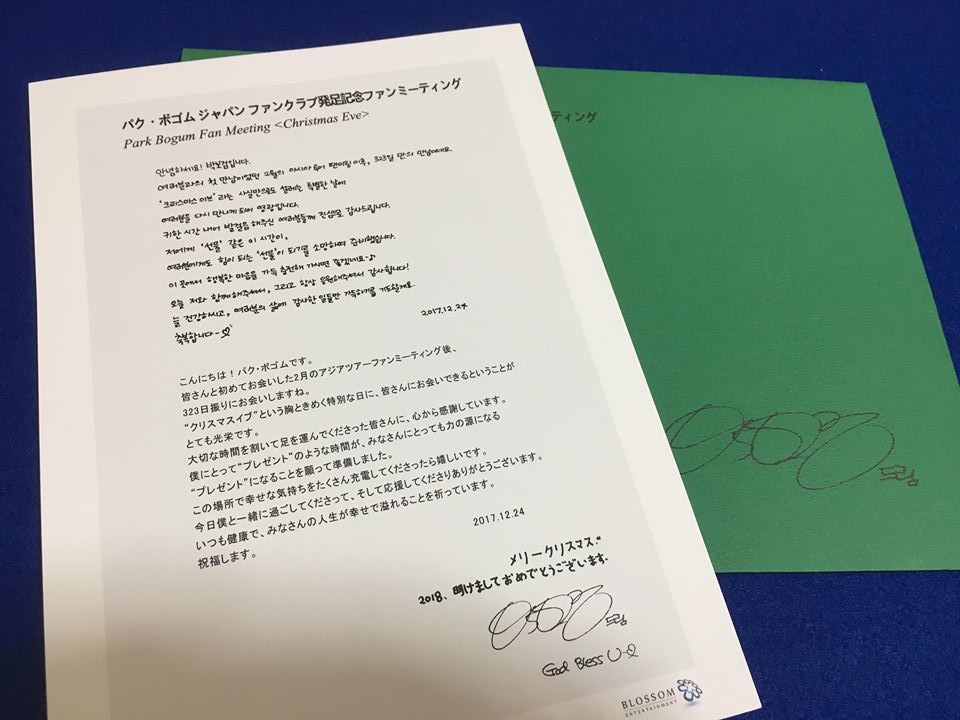 パク・ボゴム ジャパン ファンクラブ発足記念ファンミーティング
Park Bogum Fan Meeting <Christmas Eve>
안녕하세요! 박보검입니다.
여러분과의 첫 만남이었던 2월의 아시아 투어 팬미팅 이후, 323일 만의 만남이에요.
'크리스마스 이브' 라는 사실만으로도 설레는 특별한 날에
여러분을 다시 만나게 되어 영광입니다.
귀한 시간 내어 발걸음 해주신 여러분들께 진심으로 감사드립니다.
저에게 '선물' 같은 이 시간이,
여러분에게도 힘이 되는 '선물'이 되기를 소망하며 준비했습니다.
이 곳에서 행복한 마음을 가득 충전해 가시면 좋겠네요~♪
오늘 저와 함께해주셔서, 그리고 항상 응원해주셔서 감사합니다!
늘 건강하시고, 여러분의 삶에 감사한 일들만 가득하기를 기도할게요.
축복합니다~♡
2017.12.24
こんにちは！ パク・ボゴムです。
皆さんと初めてお会いした2月のアジアツアーファンミーティング後、
323日振りにお会いしますね。
“クリスマスイブ”という胸ときめく特別な日に、皆さんにお会いできるということが
とても光栄です。
大切な時間を割いて足を運んでくださった皆さんに、心から感謝しています。
僕にとって“プレゼント”のような時間が、みなさんにとっても力の源になる
“プレゼント”になることを願って準備しました。
この場所で幸せな気持ちをたくさん充電してくださったら嬉しいです。
今日僕と一緒に過ごしてくださって、そして応援してくださりありがとうございます。
いつも健康で、みなさんの人生が幸せで溢れることを祈っています。
祝福します。
2017.12.24
メリークリスマス."
2018、明けましておめでとうございます.
God Bless U~♡
BLOSSOM
ENTERTAINMENT
ティング